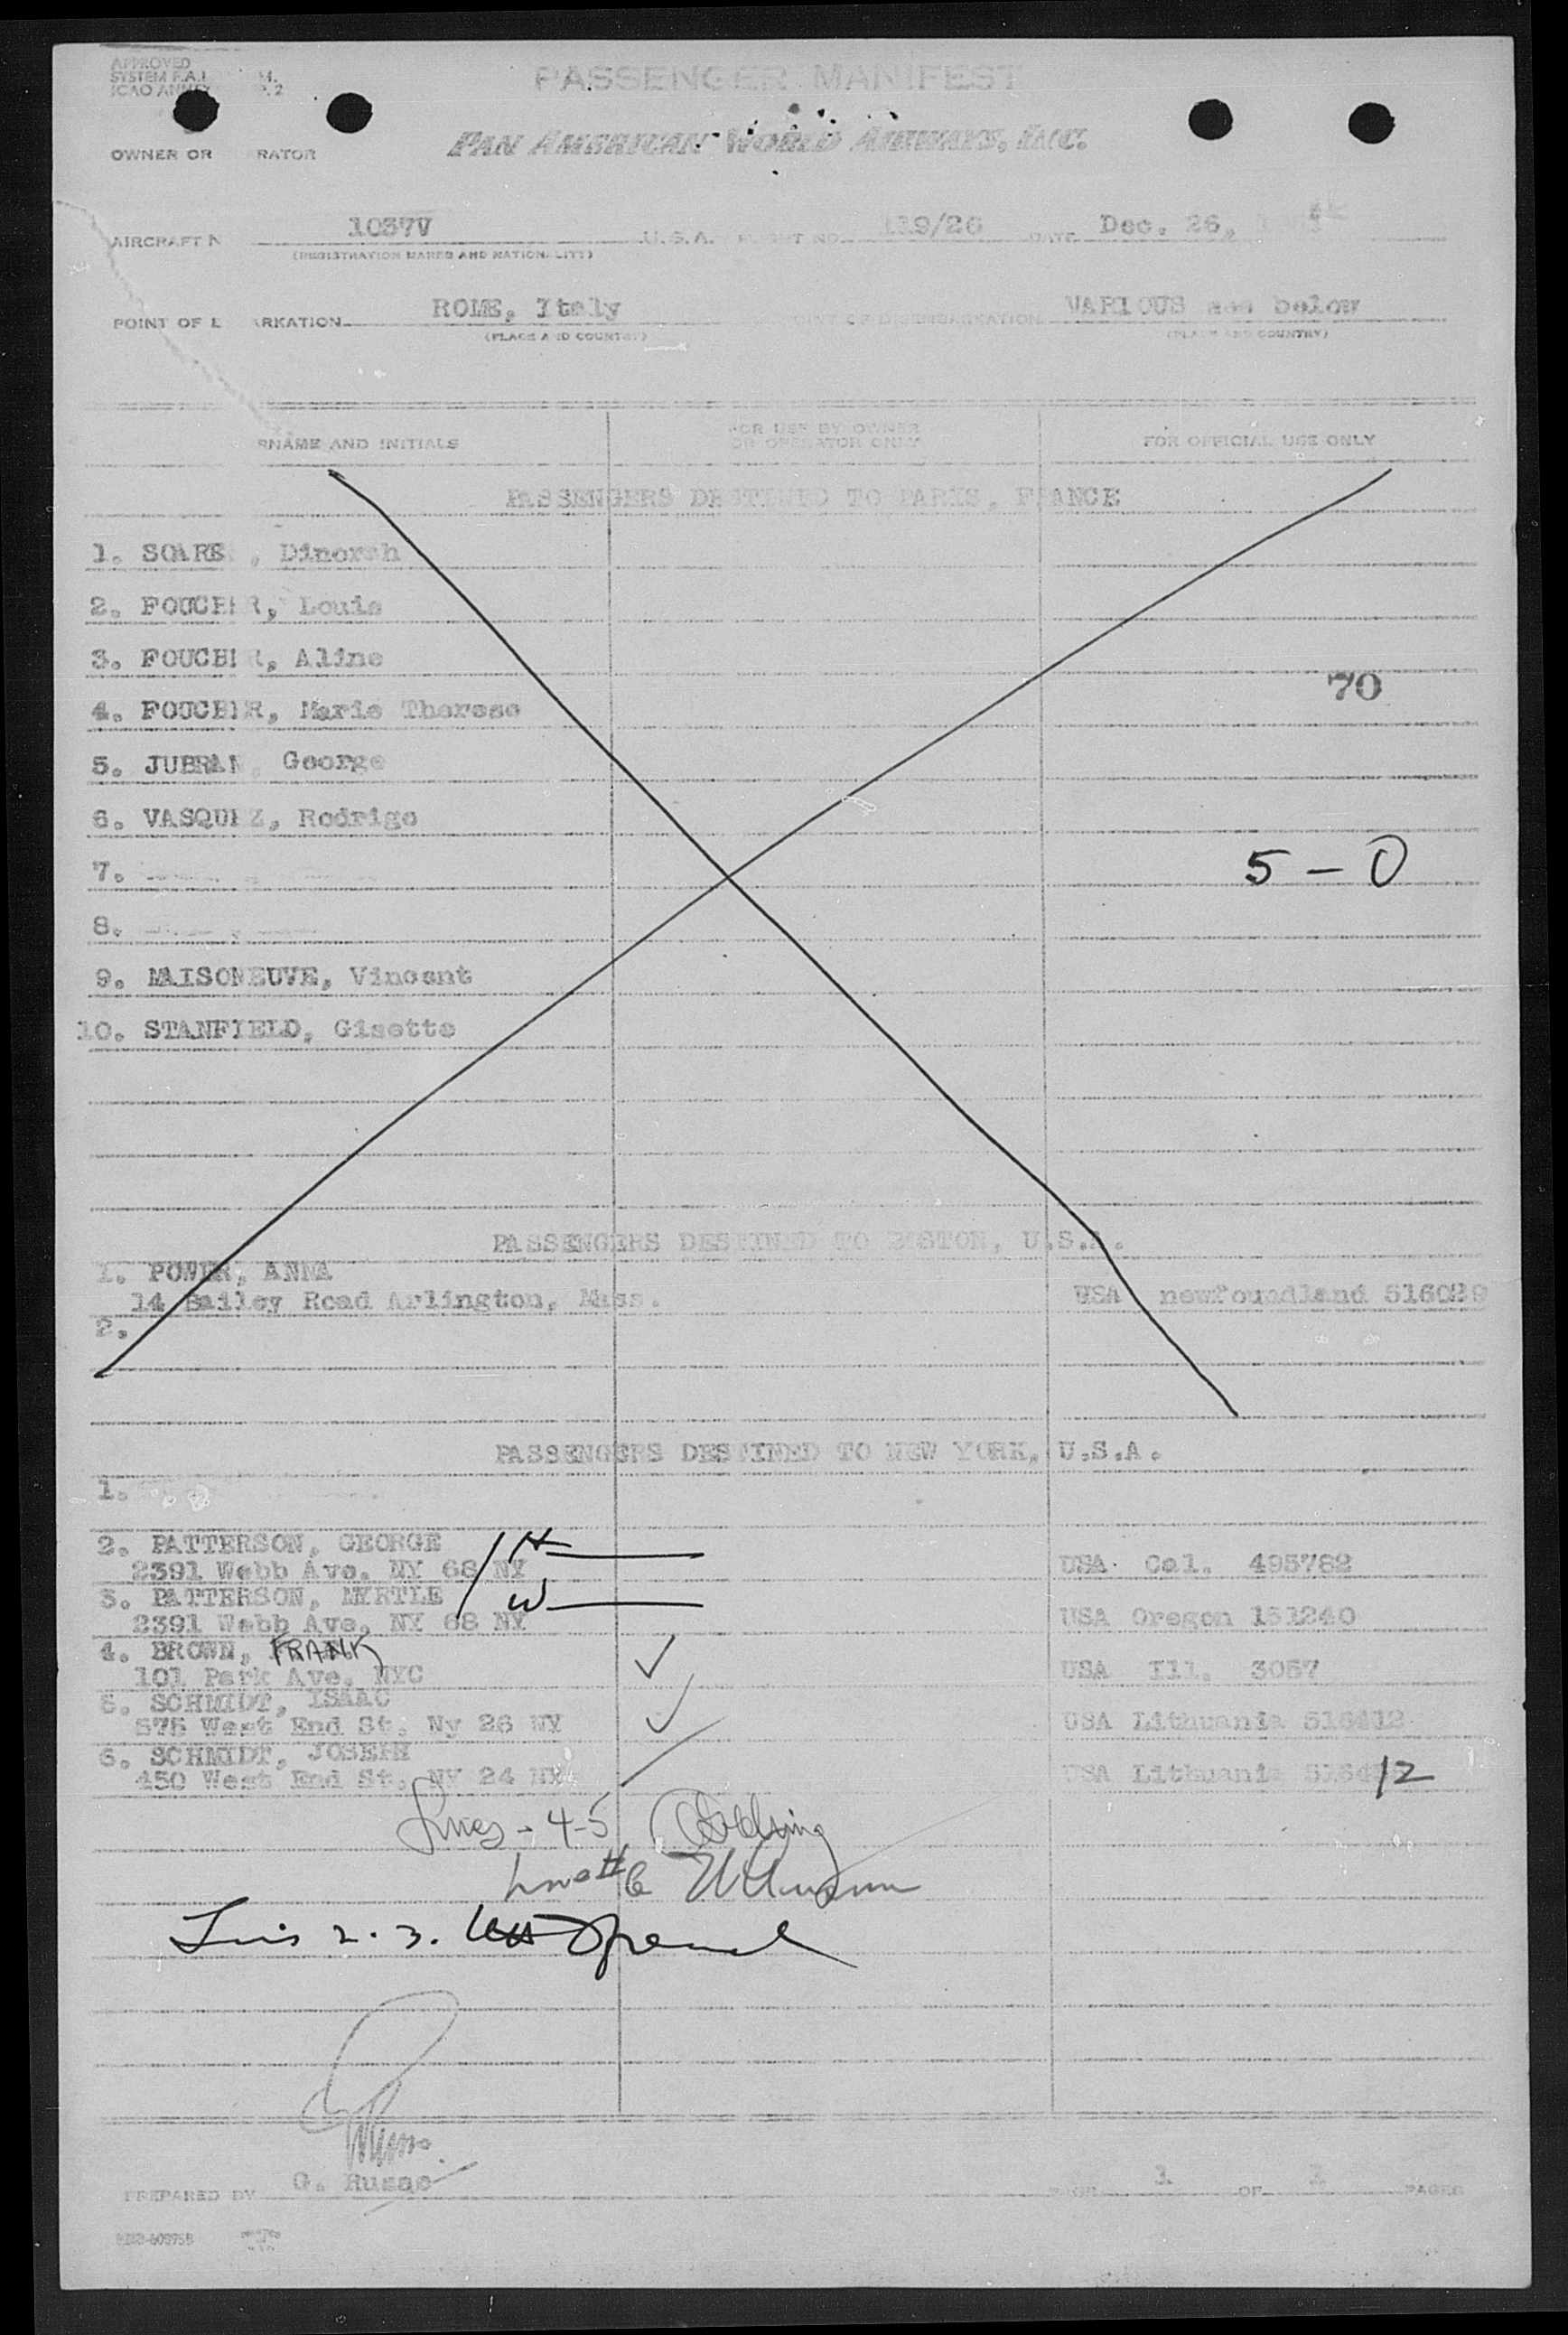 APPROVED
SYSTEM F.A.L. M.
ICAO ANNEX P. 2
PASSENGER MANIFEST
PAN AMERICAN WORLD AIRWAYS, INC.
OWNER OR RATOR
AIRCRAFT N 1037V U.S.A. FLIGHT NO. 119/26 DATE Dec. 26,
(REGISTRATION MARKS AND NATIONALITY)
POINT OF E RKATION ROME, Italy POINT OF DISEMBARKATION VARIOUS see below
(PLACE AND COUNTRY) (PLACE AND COUNTRY)
RNAME AND INITIALS FOR USE BY OWNER OR OPERATOR ONLY FOR OFFICIAL USE ONLY
PASSENGERS DESTINED TO PARIS, FRANCE
1. SOARE , Dinorah
2. FOUCHER, Louis
3. FOUCHER, Aline
70
4. FOUCHER, Marie Therese
5. JUBRAN, George
6. VASQUEZ, Rodrigo
7. 5 - 0
8.
9. MAISONEUVE, Vincent
10. STANFIELD, Gisette
PASSENGERS DESTINED TO BOSTON, U.S.A.
1. POWER, ANNA
14 Bailey Road Arlington, Mass. USA newfoundland 516029
2.
PASSENGERS DESTINED TO NEW YORK, U.S.A.
1.
2. PATTERSON, GEORGE H
2391 Webb Ave. NY 68 NY USA Cal. 495782
3. PATTERSON, MYRTLE W
2391 Webb Ave. NY 68 NY USA Oregon 151240
4. BROWN, FRANK
101 Park Ave. NYC USA Ill. 3057
5. SCHMIDT, ISAAC
575 West End St. Ny 26 NY USA Lithuania 516412
6. SCHMIDT, JOSEPH
450 West End St. NY 24 NY USA Lithuania 516412
Lines - 4-5
Line # 6
Lines 2. 3.
G. Russo
PREPARED BY PAGE 1 OF 1 PAGES